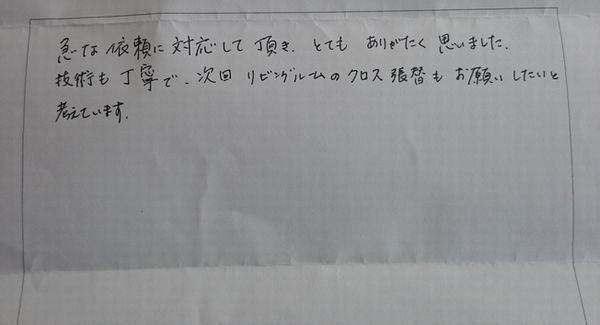 急な依頼に対応して頂き、とても ありがたく 思いました。
技術も丁寧で、次回 リビングルームのクロス張替も お願いしたいと
考えています。